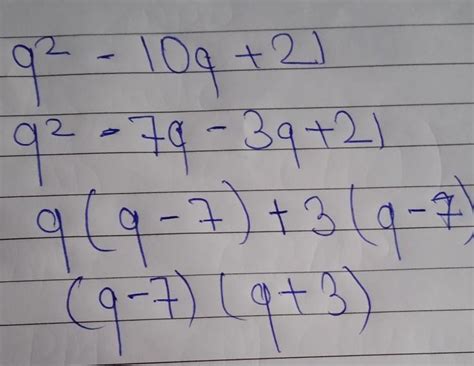 q² - 10q + 21
q² - 7q - 3q + 21
q(q - 7) + 3(q - 7)
(q - 7)(q + 3)